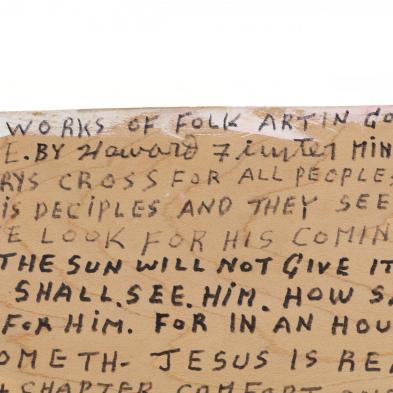 WORKS OF FOLK ART IN GO
E. BY Howard Finster MIN
RYS CROSS FOR ALL PEOPLE
IS DECIPLES AND THEY SEE
E LOOK FOR HIS COMIN
THE SUN WILL NOT GIVE IT
SHALL. SEE. HIM. HOW SA
FOR HIM. FOR IN AN HOU
OMETH- JESUS IS REA
CHAPTER COMFORT